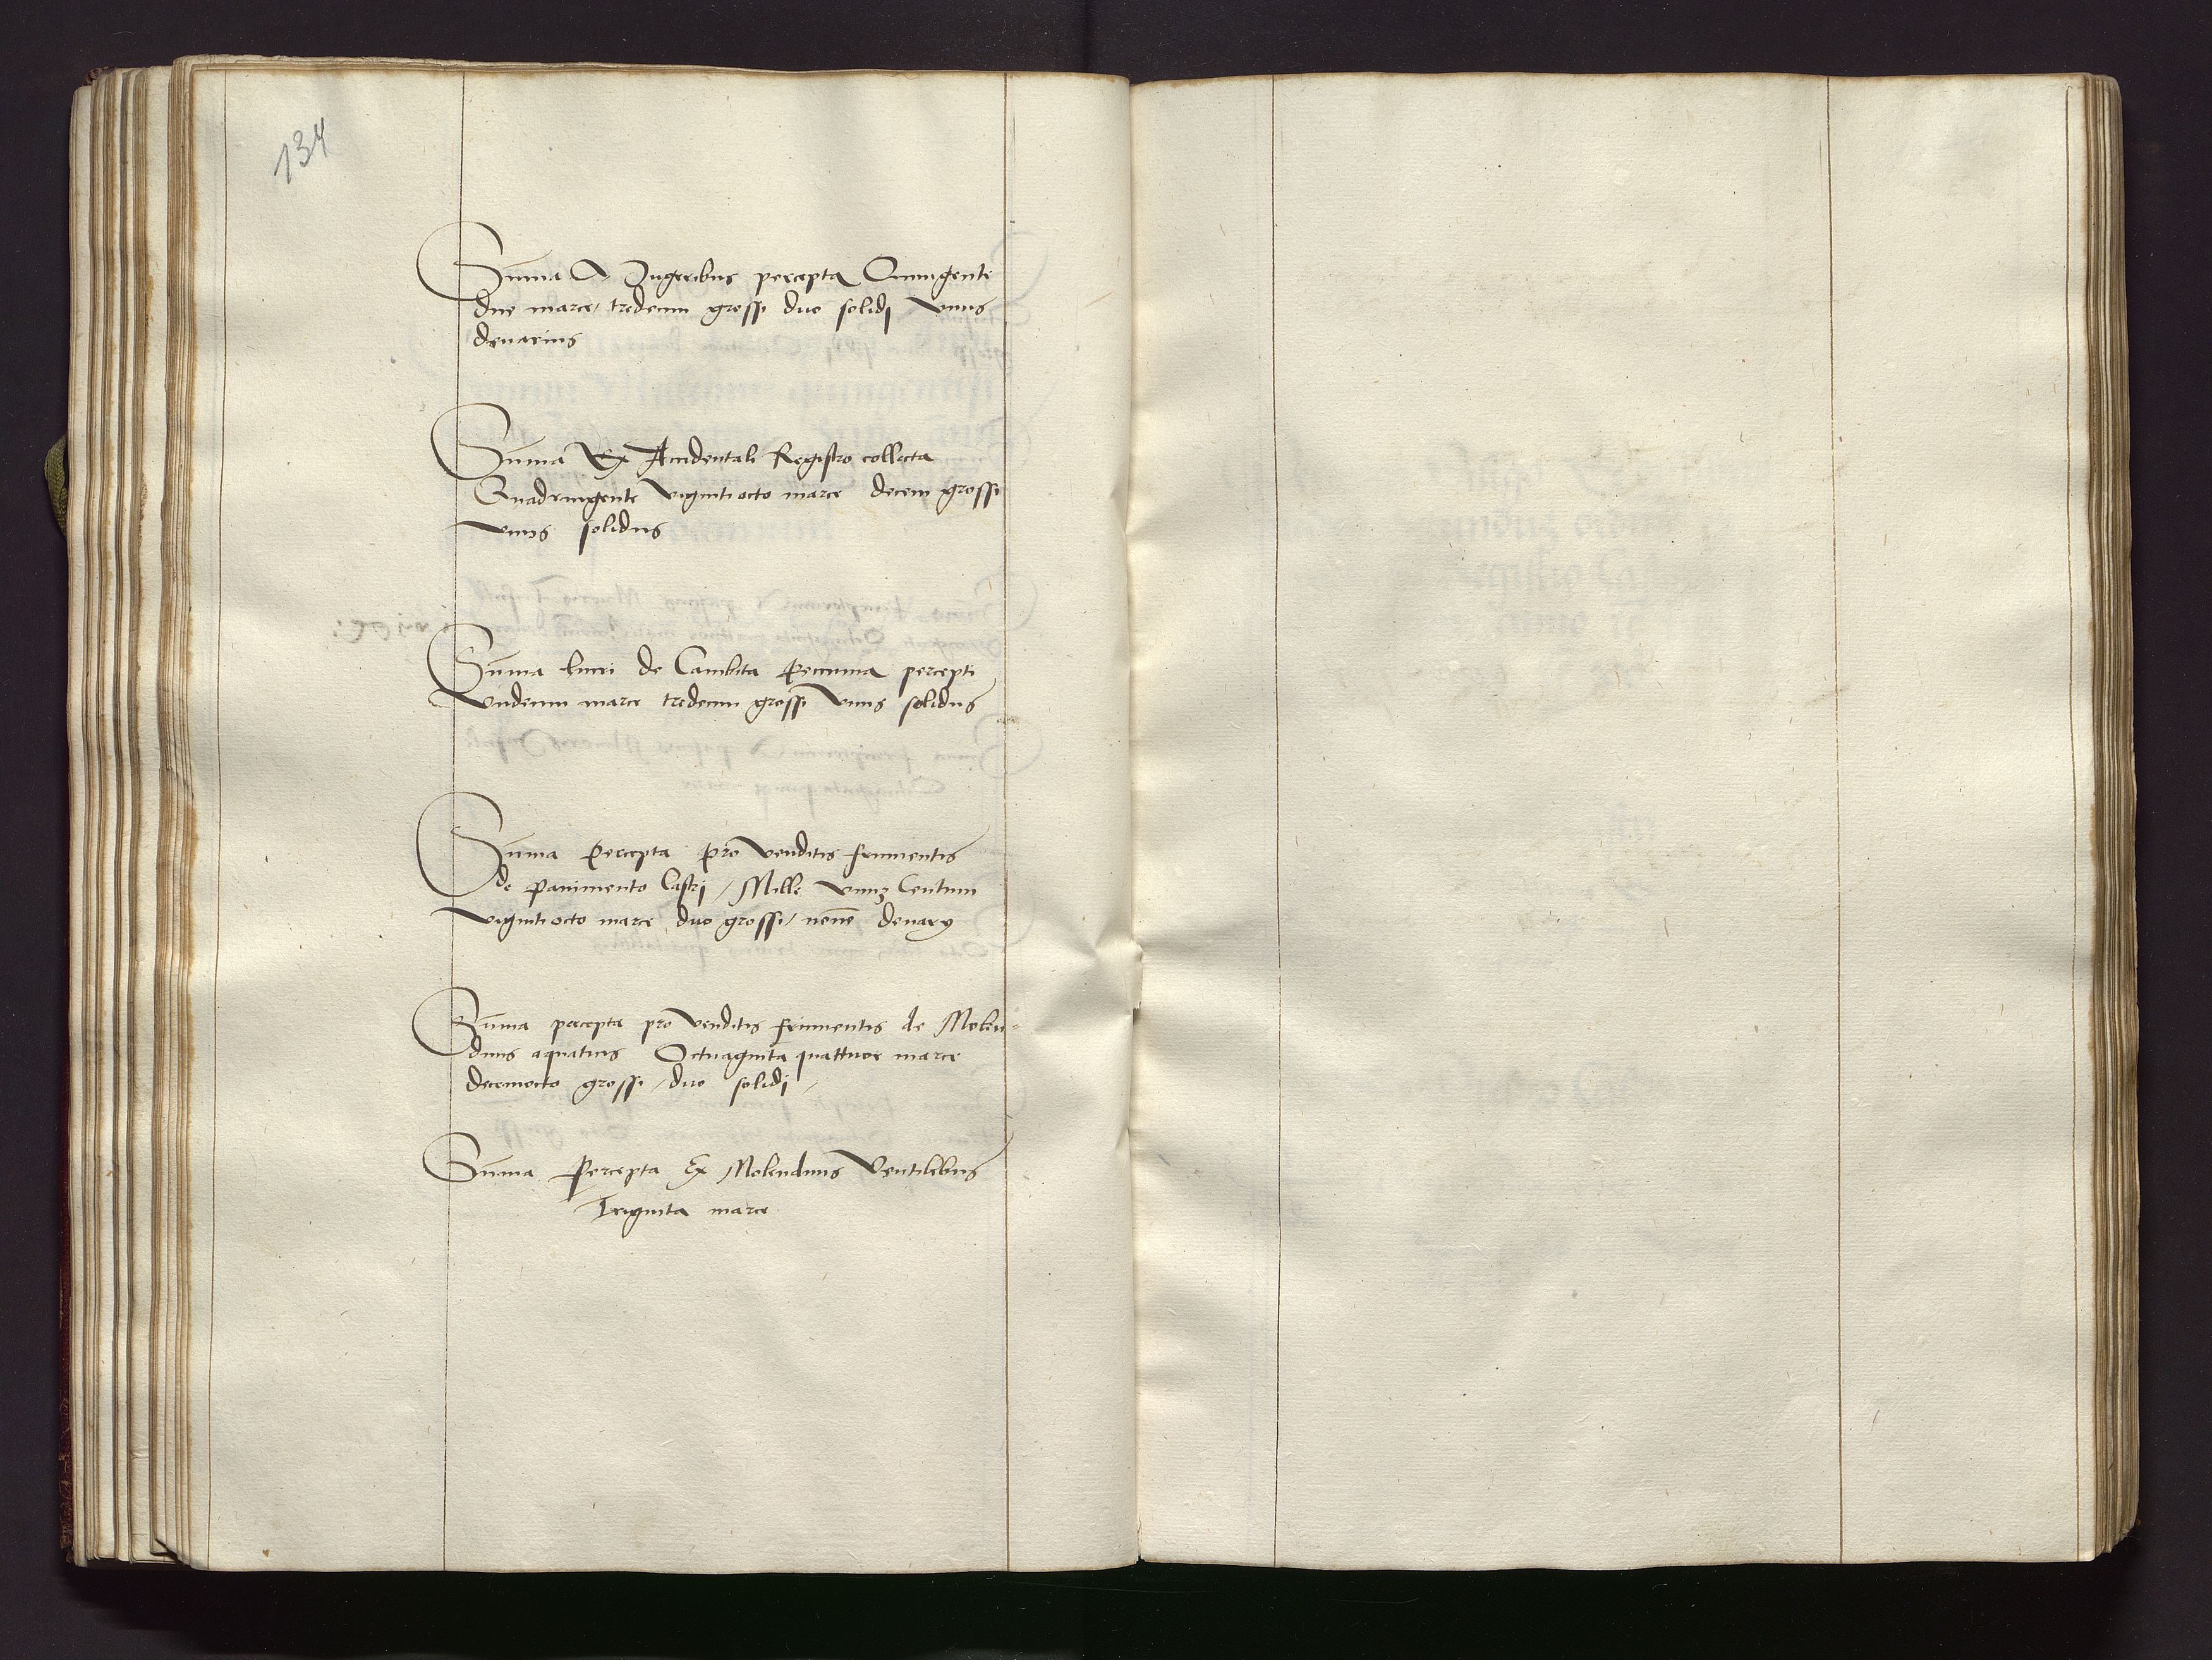 134
Summa A Iugeribus percepta Quingente
due marce, tredecim grossi duo solidj vnus
denarius
Summa Ex Accidentali Registro collecta
Quadringente viginti octo marce decem grossi
vnus solidus
Summa lucri de Cambita Pecunia percepti
Vndecim marce tredecim grossi vnus solidus
Summa Percepta pro venditis frumentis
de pauimento Castrj / Mille vnum Centum
viginti octo marce duo grossi / novem denarij
Summa percepta pro venditis frumentis de Molen-
dinis aquaticis Octuaginta quattuor marce
decemocto grossi / duo solidj /
Summa Percepta Ex Molendinis Ventilibus
Triginta marce